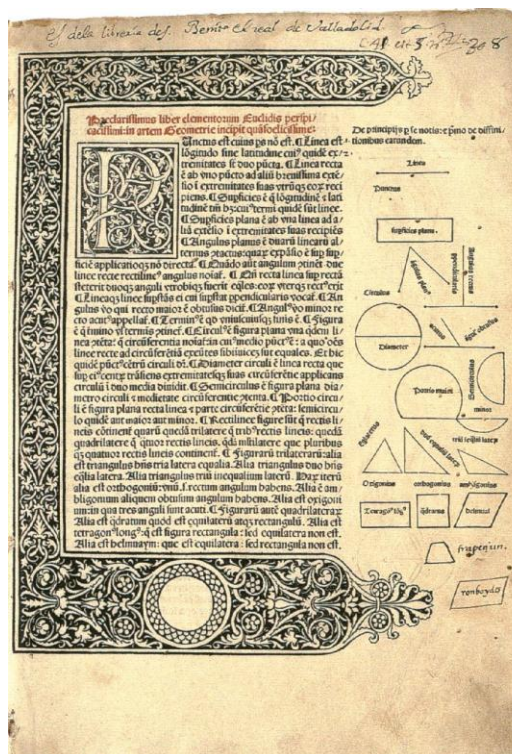 Es dela libreria de S. Benito el real de Valladolid
Preclarissimus liber elementorum Euclidis perspi/
cacissimi: in artem Geometrie incipit quāfoelicissime:
Punctus est cuius ps nō est. ¶ Linea est
lōgitudo sine latitudine cuiꝰ quidē ex/
tremitates sr̄ duo pūcta. ¶ Linea recta
ē ab vno pūcto ad aliū breuissima extē/
sio ī extremitates suas vtrūqꝫ eoꝝ reci
piens. ¶ Supficies ē q̄ lōgitudinē ⁊ lati
tudinē tm̄ hꝫ: cuiꝰ termi quidē sūt linee.
¶ Supficies plana ē ab vna linea ad a/
liā extēsio ī extremitates suas recipiēs
¶ Angulus planus ē duarū linearū al/
ternus ꝯtactus: quaꝝ expāsio ē sup sup/
ficiē applicatioqꝫ nō directa. ¶ Quādo aūt angulum ꝯtinēt due
linee recte rectilineꝰ angulus noīat̄. ¶ Qn̄ recta linea sup rectā
steterit duoqꝫ anguli vtrobiqꝫ fuerīt eq̄les: eoꝝ vterqꝫ rectꝰ erit
¶ Lineaqꝫ linee supstās ei cui supstat ppendicularis vocat̄. ¶ An
gulus vo qui recto maior ē obtusus dicit̄. ¶ Angulꝰ vo minor re
cto acutꝰ appellat̄. ¶ Terminꝰ ē qd vniuscuiusqꝫ finis ē. ¶ Figura
ē q̄ tmino vl̄ terminis ꝯtinet̄. ¶ Circulꝰ ē figura plana vna qdem li/
nea ꝯtēta: q̄ circūferentia noīat̄: in cuiꝰ medio pūctꝰ ē: a quo oēs
linee recte ad circūferētiā exeūtes sibiinuicē sūt equales. Et hic
quidē pūctꝰ cētrū circuli dr̄. ¶ Diameter circuli ē linea recta que
sup eiꝰ centꝝ trāsiens extremitatesqꝫ suas circūferētie applicans
circulū ī duo media diuidit. ¶ Semicirculus ē figura plana dia/
metro circuli ⁊ medietate circūferentie ꝯtenta. ¶ Portio circu/
li ē figura plana recta linea ⁊ parte circūferētie ꝯtēta: semicircu/
lo quidē aut maior aut minor. ¶ Rectilinee figure sūt q̄ rectis li/
neis cōtinent̄ quarū quedā trilatere q̄ tribꝰ rectis lineis: quedā
quadrilatere q̄ qtuor rectis lineis. qdā mltilatere que pluribus
qꝫ quatuor rectis lineis continent̄. ¶ Figurarū trilaterarū: alia
est triangulus hn̄s tria latera equalia. Alia triangulus duo hn̄s
eq̄lia latera. Alia triangulus triū inequalium laterū. Haꝝ iterū
alia est orthogoniū: vnū .i. rectum angulum habens. Alia ē am/
bligonium aliquem obtusum angulum habens. Alia est oxigoni
um: in qua tres anguli sunt acuti. ¶ Figurarū autē quadrilateraꝝ
Alia est q̄dratum quod est equilaterū atqꝫ rectangulū. Alia est
tetragonꝰ longꝰ: q̄ est figura rectangula: sed equilatera non est.
Alia est helmuaym: que est equilatera: sed rectangula non est.
De principijs p se notis: ⁊ pmo de diffini/
tionibus earundem.
Linea
Punctus
Supficies plana.
Circulus
Diameter
acutus
āgꝰ obtusus
Portio maior
Semicirculus
minor
duū equaliū laterꝝ
triū īeq̄liū laterꝝ
Oxigonius
orthogonius
ambligonius
Tetragonꝰ lōgꝰ
q̄dratus
helmuaym
trapezium.
romboydes